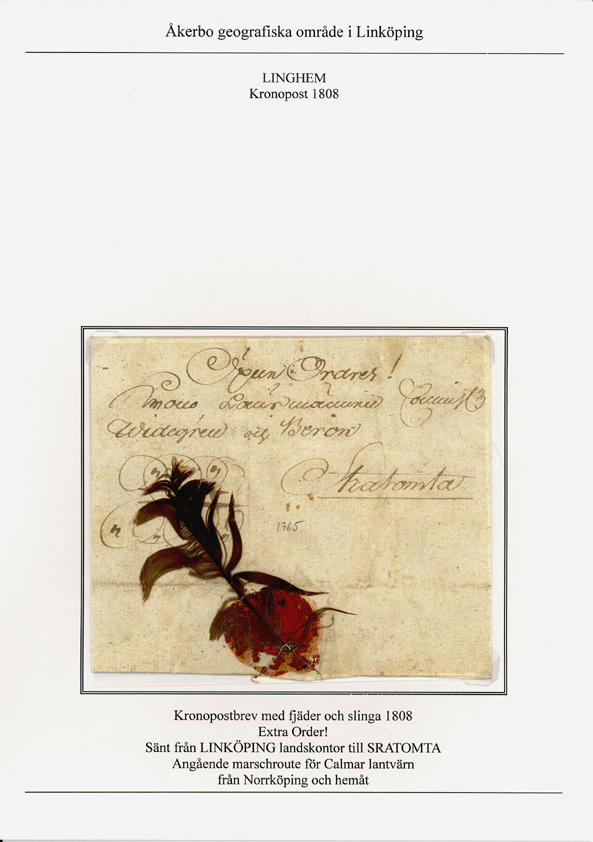 Åkerbo geografiska område i Linköping
LINGHEM
Kronopost 1808
Öpen Ordres!
Widegren och Beron
Sratomta
1765
Kronopostbrev med fjäder och slinga 1808
Extra Order!
Sänt från LINKÖPING landskontor till SRATOMTA
Angående marschroute för Calmar lantvärn
från Norrköping och hemåt